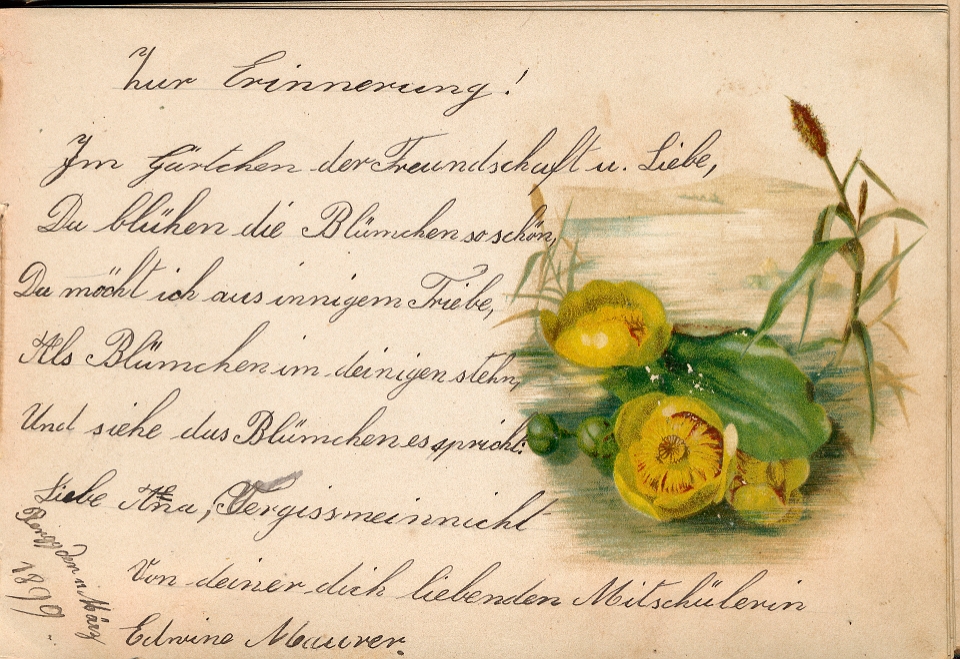 Zur Erinnerung!
Im Gärtchen der Freundschaft u. Liebe,
Da blühen die Blümchen so schön,
Da möcht ich aus innigem Triebe,
Als Blümchen im deinigen stehn,
Und siehe das Blümchen es spricht:
Liebe Ana, Vergissmeinnicht
Von deiner dich liebenden Mitschülerin
Edwine Maurer.
den 11 März